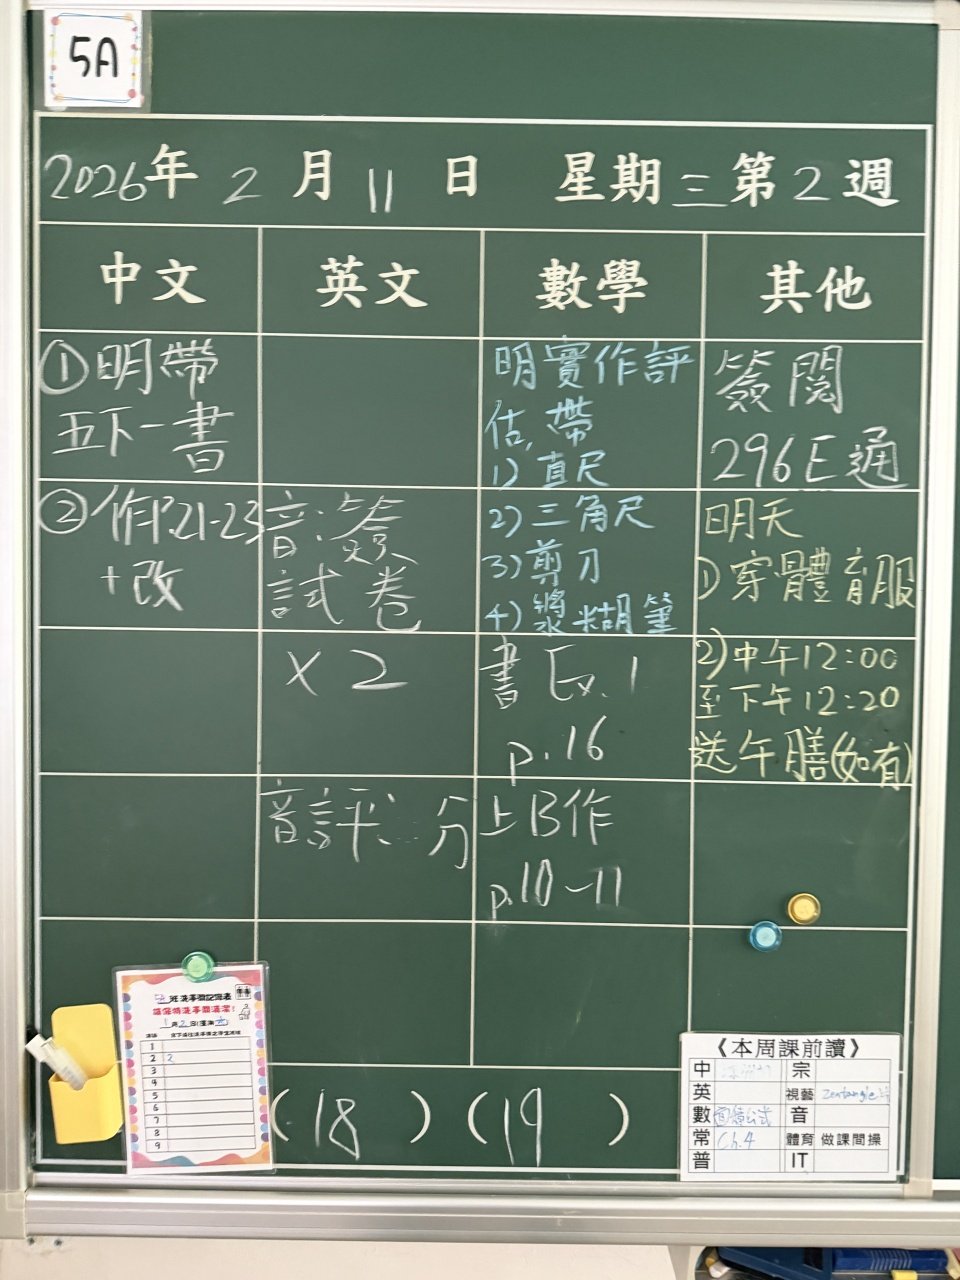 5A
2026年 2 月 11 日 星期三第2週
中文 英文 數學 其他
①明帶
五下一書
②作P.21-23
+改
音:簽
試卷
×2
音評: 分
明實作評
估,帶
1)直尺
2)三角尺
3)剪刀
4)漿糊筆
書 Ex.1
p.16
上B作
p.10-11
簽閱
296E通
明天
1)穿體育服
2)中午12:00
至下午12:20
送午膳(如有)
(18) (19)
5A班洗手間記錄表
請保持洗手間清潔!
1月2日(星期六)
1
2 2
3
4
5
6
7
8
9
《本周課前讀》
中 宗
英 視藝 zentangle
數 面積公式 音
常 Ch.4 體育 做課間操
普 IT